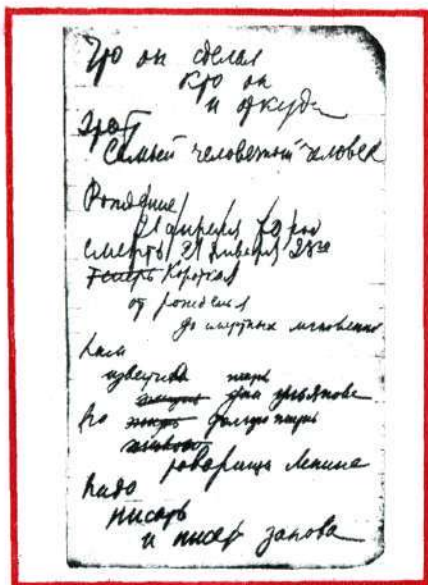 Что он сделал
кто он
и откуда
Этот
Самый человечный человек
Рождение
21 апреля 70 год
Смерть 21 января
Теперь Короткая
от рождения
до смертных мгновений
Нам
известна жизнь
дни Ульянова
Но жизнь долгую жизнь
товарища Ленина
Надо
писать
и писать заново